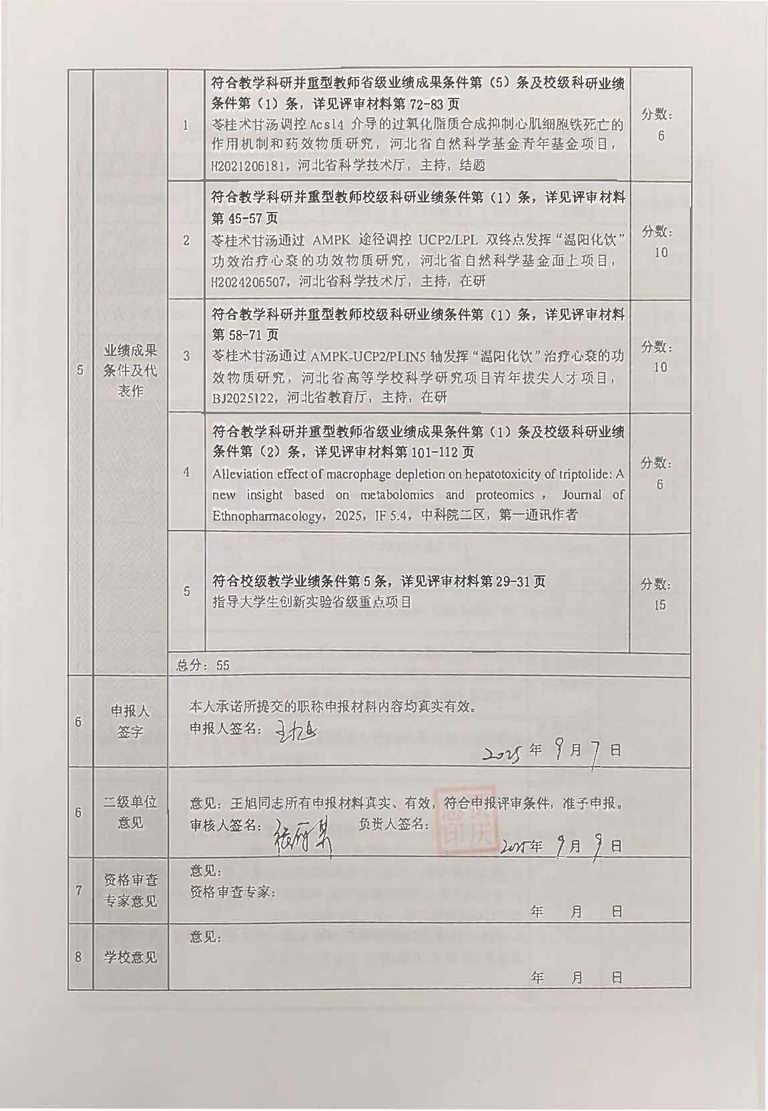 5
业绩成果
条件及代
表作
1
符合教学科研并重型教师省级业绩成果条件第（5）条及校级科研业绩
条件第（1）条，详见评审材料第72-83页
苓桂术甘汤调控Acsl4 介导的过氧化脂质合成抑制心肌细胞铁死亡的
作用机制和药效物质研究，河北省自然科学基金青年基金项目，
H2021206181，河北省科学技术厅，主持，结题
分数：
6
2
符合教学科研并重型教师校级科研业绩条件第（1）条，详见评审材料
第45-57页
苓桂术甘汤通过 AMPK 途径调控 UCP2/LPL 双终点发挥“温阳化饮”
功效治疗心衰的功效物质研究，河北省自然科学基金面上项目，
H2024206507，河北省科学技术厅，主持，在研
分数：
10
3
符合教学科研并重型教师校级科研业绩条件第（1）条，详见评审材料
第58-71页
苓桂术甘汤通过AMPK-UCP2/PLIN5轴发挥“温阳化饮”治疗心衰的功
效物质研究，河北省高等学校科学研究项目青年拔尖人才项目，
BJ2025122，河北省教育厅，主持，在研
分数：
10
4
符合教学科研并重型教师省级业绩成果条件第（1）条及校级科研业绩
条件第（2）条，详见评审材料第101-112页
Alleviation effect of macrophage depletion on hepatotoxicity of triptolide: A
new insight based on metabolomics and proteomics，Journal of
Ethnopharmacology，2025，IF 5.4，中科院二区，第一通讯作者
分数：
6
5
符合校级教学业绩条件第5条，详见评审材料第29-31页
指导大学生创新实验省级重点项目
分数：
15
总分：55
6
申报人
签字
本人承诺所提交的职称申报材料内容均真实有效。
申报人签名：王旭
2025年9月7日
6
二级单位
意见
意见：王旭同志所有申报材料真实、有效，符合申报评审条件，准予申报。
审核人签名： 负责人签名：
2025年9月9日
7
资格审查
专家意见
意见：
资格审查专家：
年 月 日
8
学校意见
意见：
年 月 日